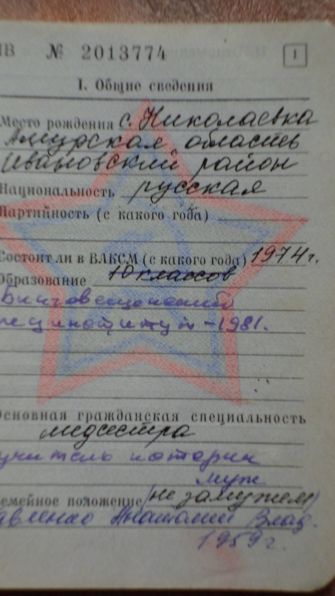 НВ № 2013774 1
I. Общие сведения
Место рождения с. Николаевка
Амурская область
Ивановский район
Национальность русская
Партийность (с какого года)
Состоит ли в ВЛКСМ (с какого года) 1974 г.
Образование 10 классов
Благовещенский
пединститут - 1981.
Основная гражданская специальность
медсестра
учитель истории
муж
Семейное положение (не замужем)
Анатолий Влад.
1959 г.